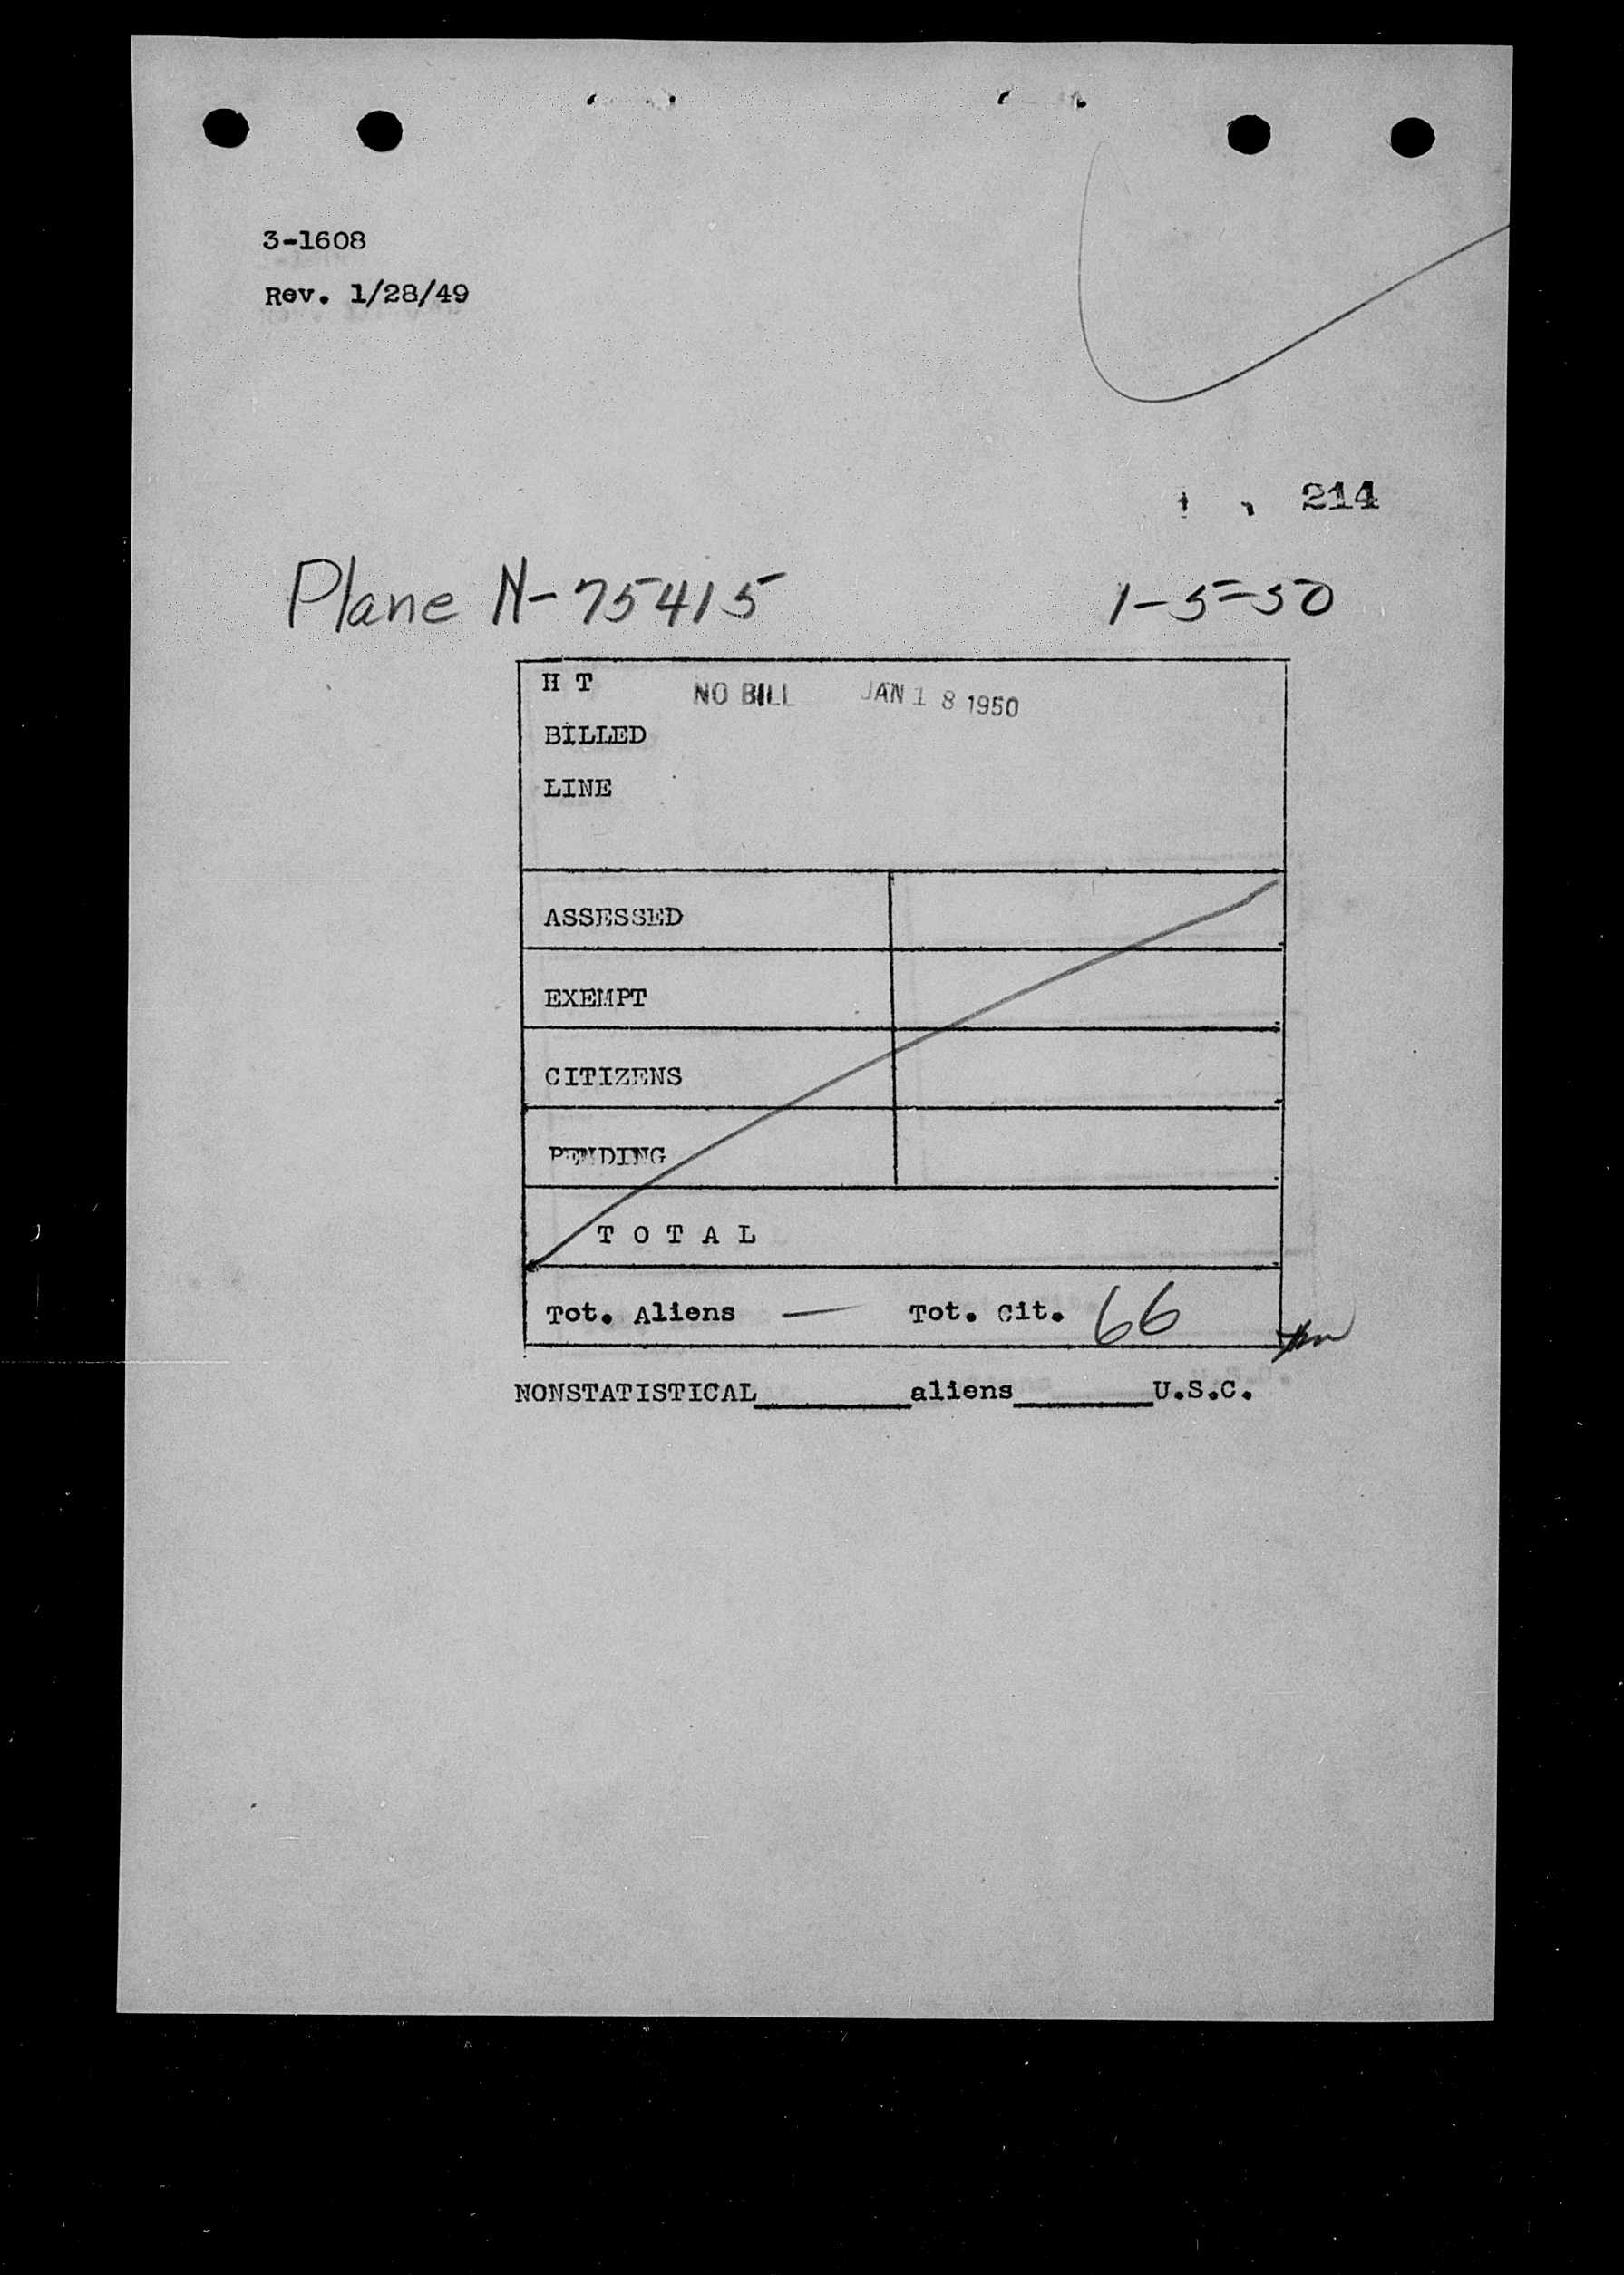 3-1608
Rev. 1/28/49
214
Plane N-75415 1-5-50
H T NO BILL JAN 18 1950
BILLED
LINE
ASSESSED
EXEMPT
CITIZENS
PENDING
T O T A L
Tot. Aliens — Tot. Cit. 66
NONSTATISTICAL________aliens_______U.S.C.